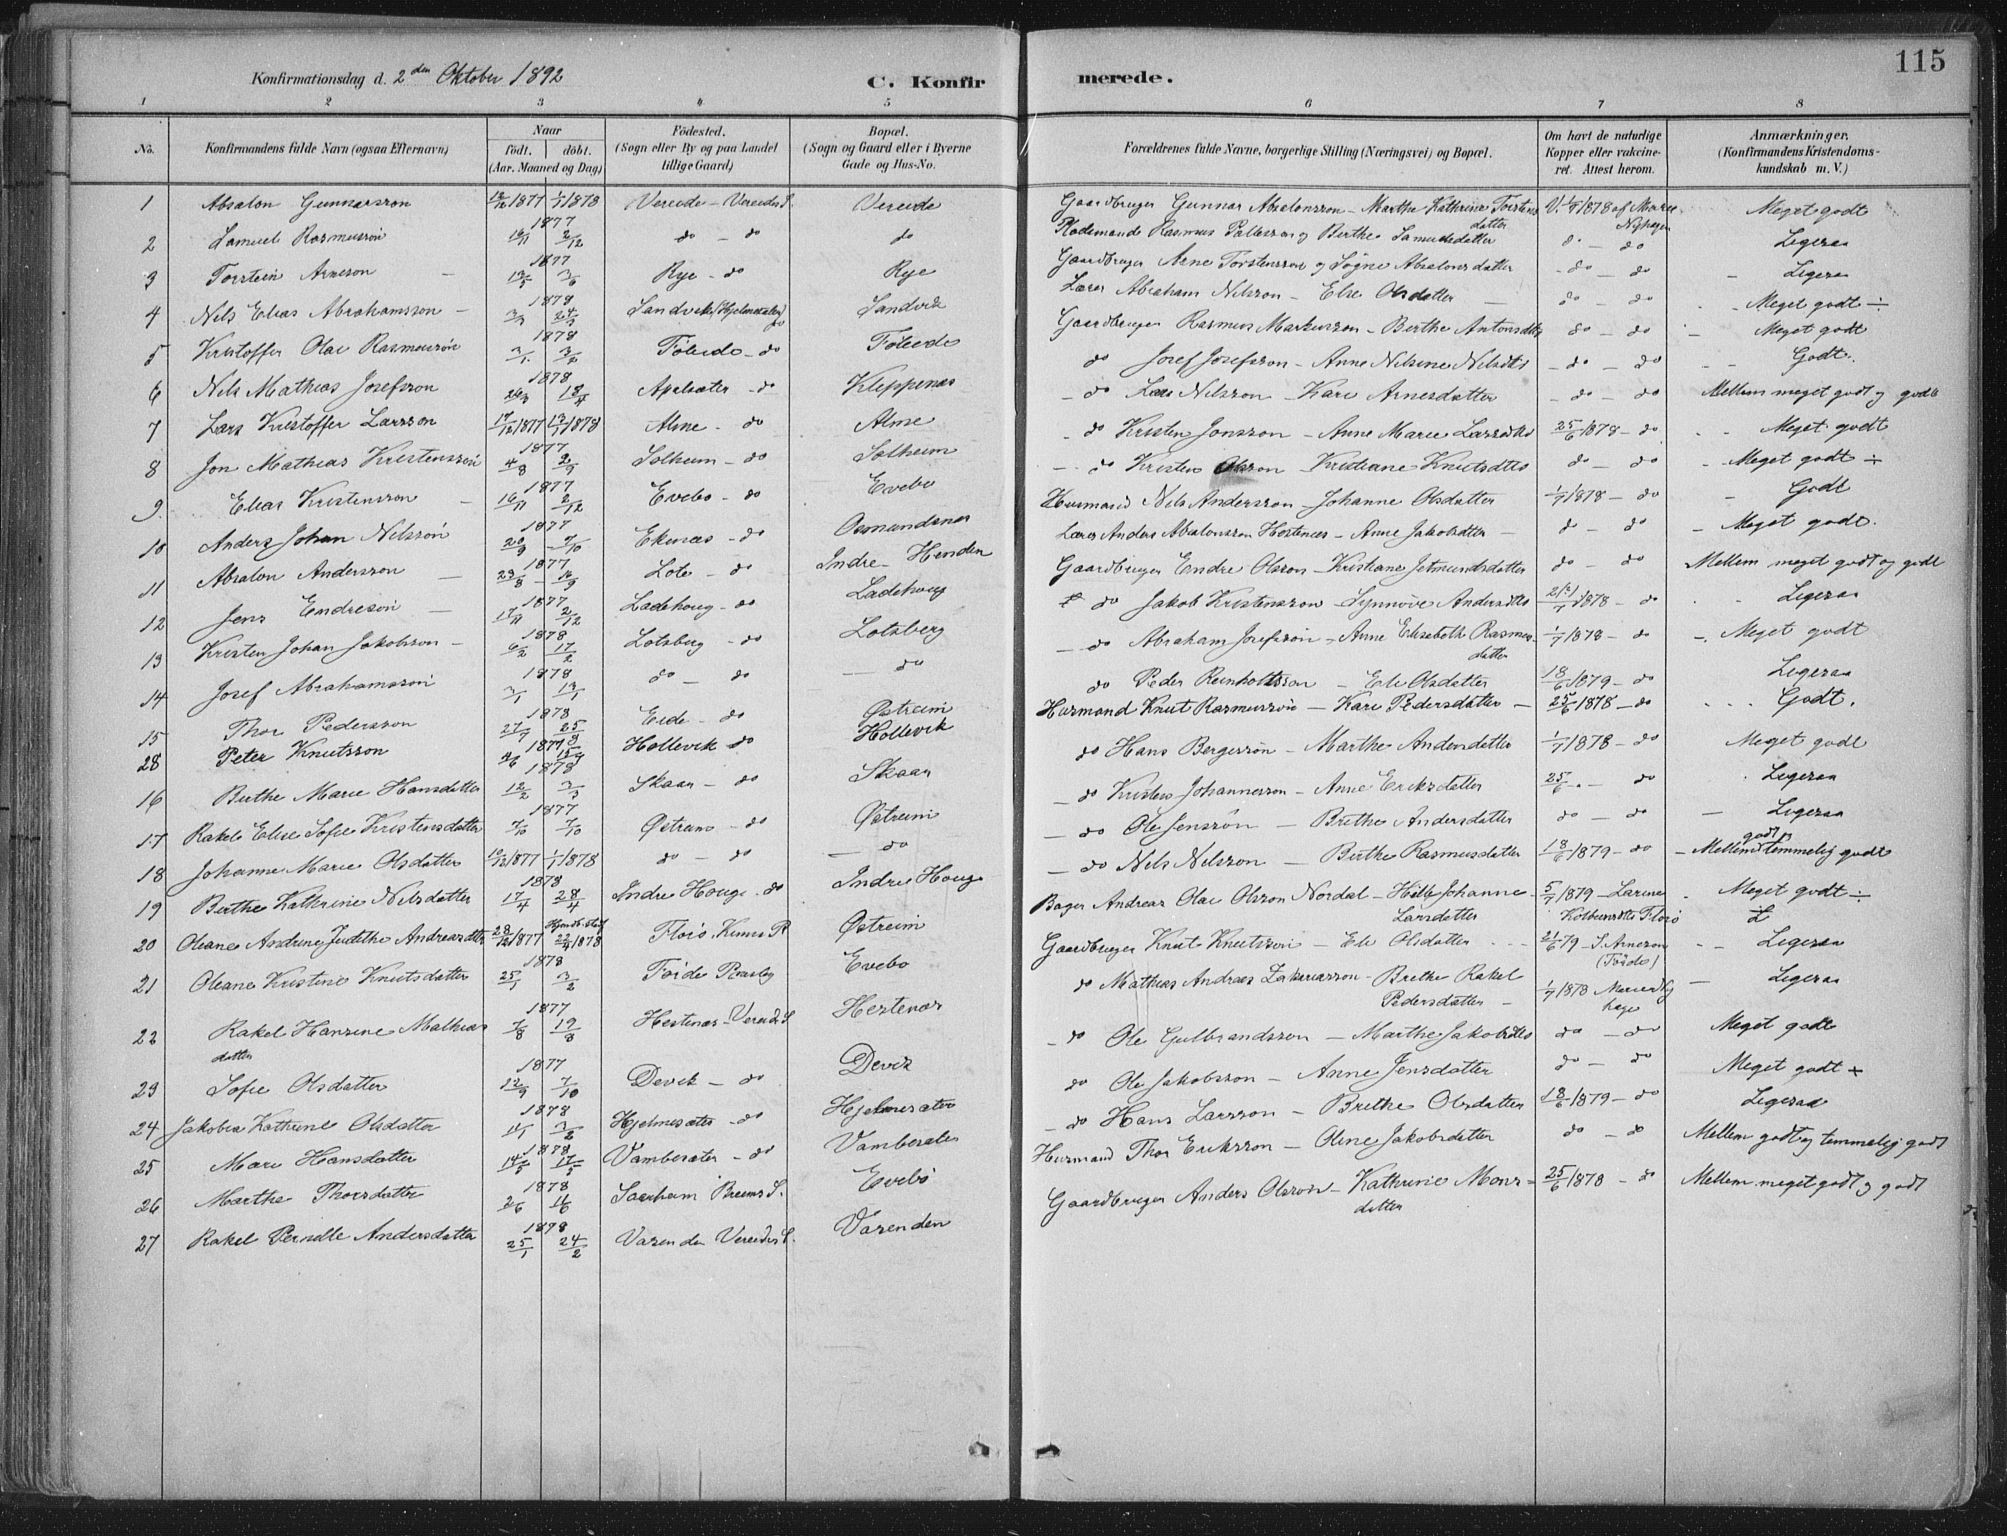 115
Konfirmationsdag d. 2den Oktober 1892
C. Konfirmerede.
1 2 3 4 5 6 7 8
No. Konfirmandens fulde Navn (ogsaa Efternavn) Naar födt. döbt. (Aar, Maaned og Dag) Födested. (Sogn eller By og paa Landet tillige Gaard) Bopæl. (Sogn og Gaard eller i Byerne Gade og Hus-No. Forældrenes fulde Navne, borgerlige Stilling (Næringsvei) og Bopæl. Om havt de naturlige Kopper eller vakcineret. Attest herom. Anmærkninger. (Konfirmandens Kristendomskundskab m. V.)
1 Absalon Gunnarsson 1/1 1878 Vereide – Vereides S. Vereide Gaardbruger Gunnar Absalonsson – Marthe Kathrine Torstensdatter Meget godt
2 Samuel Rasmussön 1877 16/11 2/12 do – do do Rasmus Pallesson og Berthe Samuelsdatter do – do Ligesaa
3 Torstein Arneson 1877 Rye – do Rye Gaardbruger Arne Torstensson og Signe Absalonsdatter do – do Ligesaa
4 Nils Elias Abrahamsson 1878 3/3 24/3 Sandvik Lærer Abraham Nilsson – Else Olsdatter do – do Meget godt ÷
5 Kristoffer Olai Rasmussön 1878 3/1 3/2 Föleide – do Föleide Gaardbruger Rasmus Markusson – Berthe Antonsdtr do – do Meget godt
6 Nils Mathias Josefsson 1878 26/3 18/4 Apalsæter – do Kleppenæs do Josef Josefsson – Anne Nilsine Nilsdtr do – do Godt.
7 Lars Kristoffer Larsson 17/12 1877 13/1 1878 Alme – do Alme do Lars Nilsson – Kari Arnesdatter do – do Mellem meget godt og godt
8 Jon Mathias Kristensson 1877 4/8 2/9 Solheim – do Solheim do Kristen Jonsson – Anne Marie Larsdtr 25/6 1878 – do Meget godt
9 Elias Kristensson 1877 16/11 2/12 Evebö – do Evebö do Kristen Olsson – Kristiane Knutsdtr do – do Meget godt ÷
10 Anders Johan Nilssön 1877 20/9 7/10 Ekenæs – do Osmundsnes Husmand Nils Andersson – Johanne Olsdatter 1/7 1878 – do Godt
11 Absalon Andersson 1877 23/8 16/9 Lote – do Indre Henden Lærer Anders Absalonsson Hestenes – Anne Jakobsdatter do – do Meget godt.
12 Jens Endresön 1877 17/11 2/12 Ladehoug – do Ladehoug Gaardbruger Endre Olsson – Kristiane Jetmundsdatter do – do Mellem meget godt og godt
13 Kristen Johan Jakobsson 1878 6/2 17/2 Lotsberg – do Lotsberg do Jakob Kristensson – Synnöve Andersdtr 1878 – do Ligesaa
14 Josef Abrahamssön 1878 3/1 13/1 do – do do do Abraham Josefssön – Anne Elisebeth Rasmusdatter 1/7 1878 – do Meget godt
15 Thor Pedersson 1878 Eide – do Østreim do Peder Reinholtsson – Eli Olsdatter 18/6 1879 – do Ligesaa
28 Peter Knutsson Hollevik do Hollevik Husmand Knut Rasmussön – Kari Pedersdatter 25/6 1878 – do Godt.
16 Berthe Marie Hansdatter 1878 12/2 3/3 Skaar – do Skaar do Hans Bergessön – Marthe Andersdatter 1/7 1878 – do Meget godt
17 Rakel Elise Sofie Kristensdatter 1877 7/10 Østreim – do Østreim do Kristen Johannesson – Anne Eriksdatter 25/6 – do Ligesaa
18 Johanne Marie Olsdatter 1877 1/1 1878 do – do do do Ole Jenssön – Brithe Andersdatter do – do Ligesaa
19 Berthe Kathrine Nilsdatter 1878 17/4 28/4 Indre Houge do Indre Houge do Nils Nilsson – Berthe Rasmusdatter 18/6 1879 – do Mellem godt og temmelig godt
20 Oleane Andrine Judithe Andreasdtr 28/12 1877 22/4 1878 Florö Østreim Bager Andreas Olai Olsson Nordal – Johanne Larsdatter 5/7 1879 – Larine Florö Meget godt ÷
21 Oleane Kristine Knutsdatter 1878 25/1 3/2 Evebö Gaardbruger Knut Knutssön – Eli Olsdatter 21/6 79 – S. Arneson (Förde) Ligesaa
22 Rakel Hansine Mathiasdatter 1877 7/8 19/8 Hestenæs – Vereides S Hestenæs do Mathias Andreas Zakariasson – Brethe Rakel Pedersdatter 1/7 1878 Ligesaa
23 Sofie Olsdatter 1877 12/9 7/10 Devik – do Devik do Ole Gulbrandsson – Marthe Jakobsdtr do – do Meget godt
24 Jakobia Kathrine Olsdatter 1878 3/2 Hjelmesæter – do Hjelmesæter do Ole Jakobsson – Anne Jensdatter do – do Meget godt
25 Mari Hansdatter 1878 Vambesæter – do Vambesæter do Hans Larsson – Brethe Olsdatter 18/6 1879 – do Ligesaa
26 Marthe Thorsdatter 1878 Breims S. Evebö Husmand Thor Eriksson – Oline Jakobsdatter do – do Mellem godt og temmelig godt
27 Rakel Pernille Andersdatter 1878 25/1 24/2 Varenden Vereides S. Varenden Gaardbruger Anders Olssön – Kathrine Monsdatter 25/6 1878 – do Mellem meget godt og godt